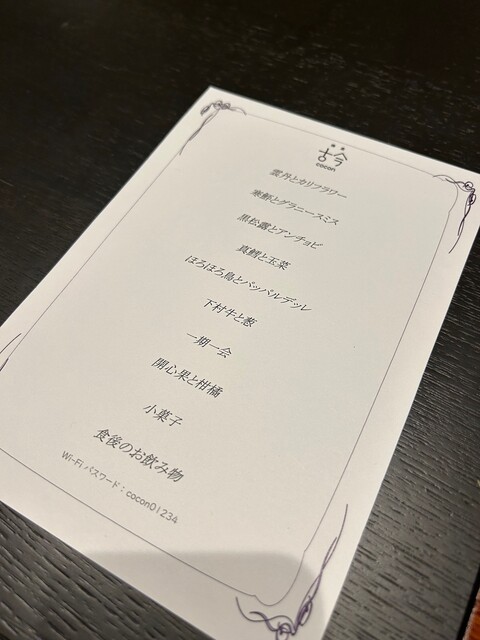 古今
cocon
雲丹とカリフラワー
寒鰤とグラニースミス
黒松露とアンチョビ
真鱈と玉菜
ほろほろ鳥とパッパルデッレ
下村牛と葱
一期一会
開心果と柑橘
小菓子
食後のお飲み物
Wi-Fi パスワード：cocon01234